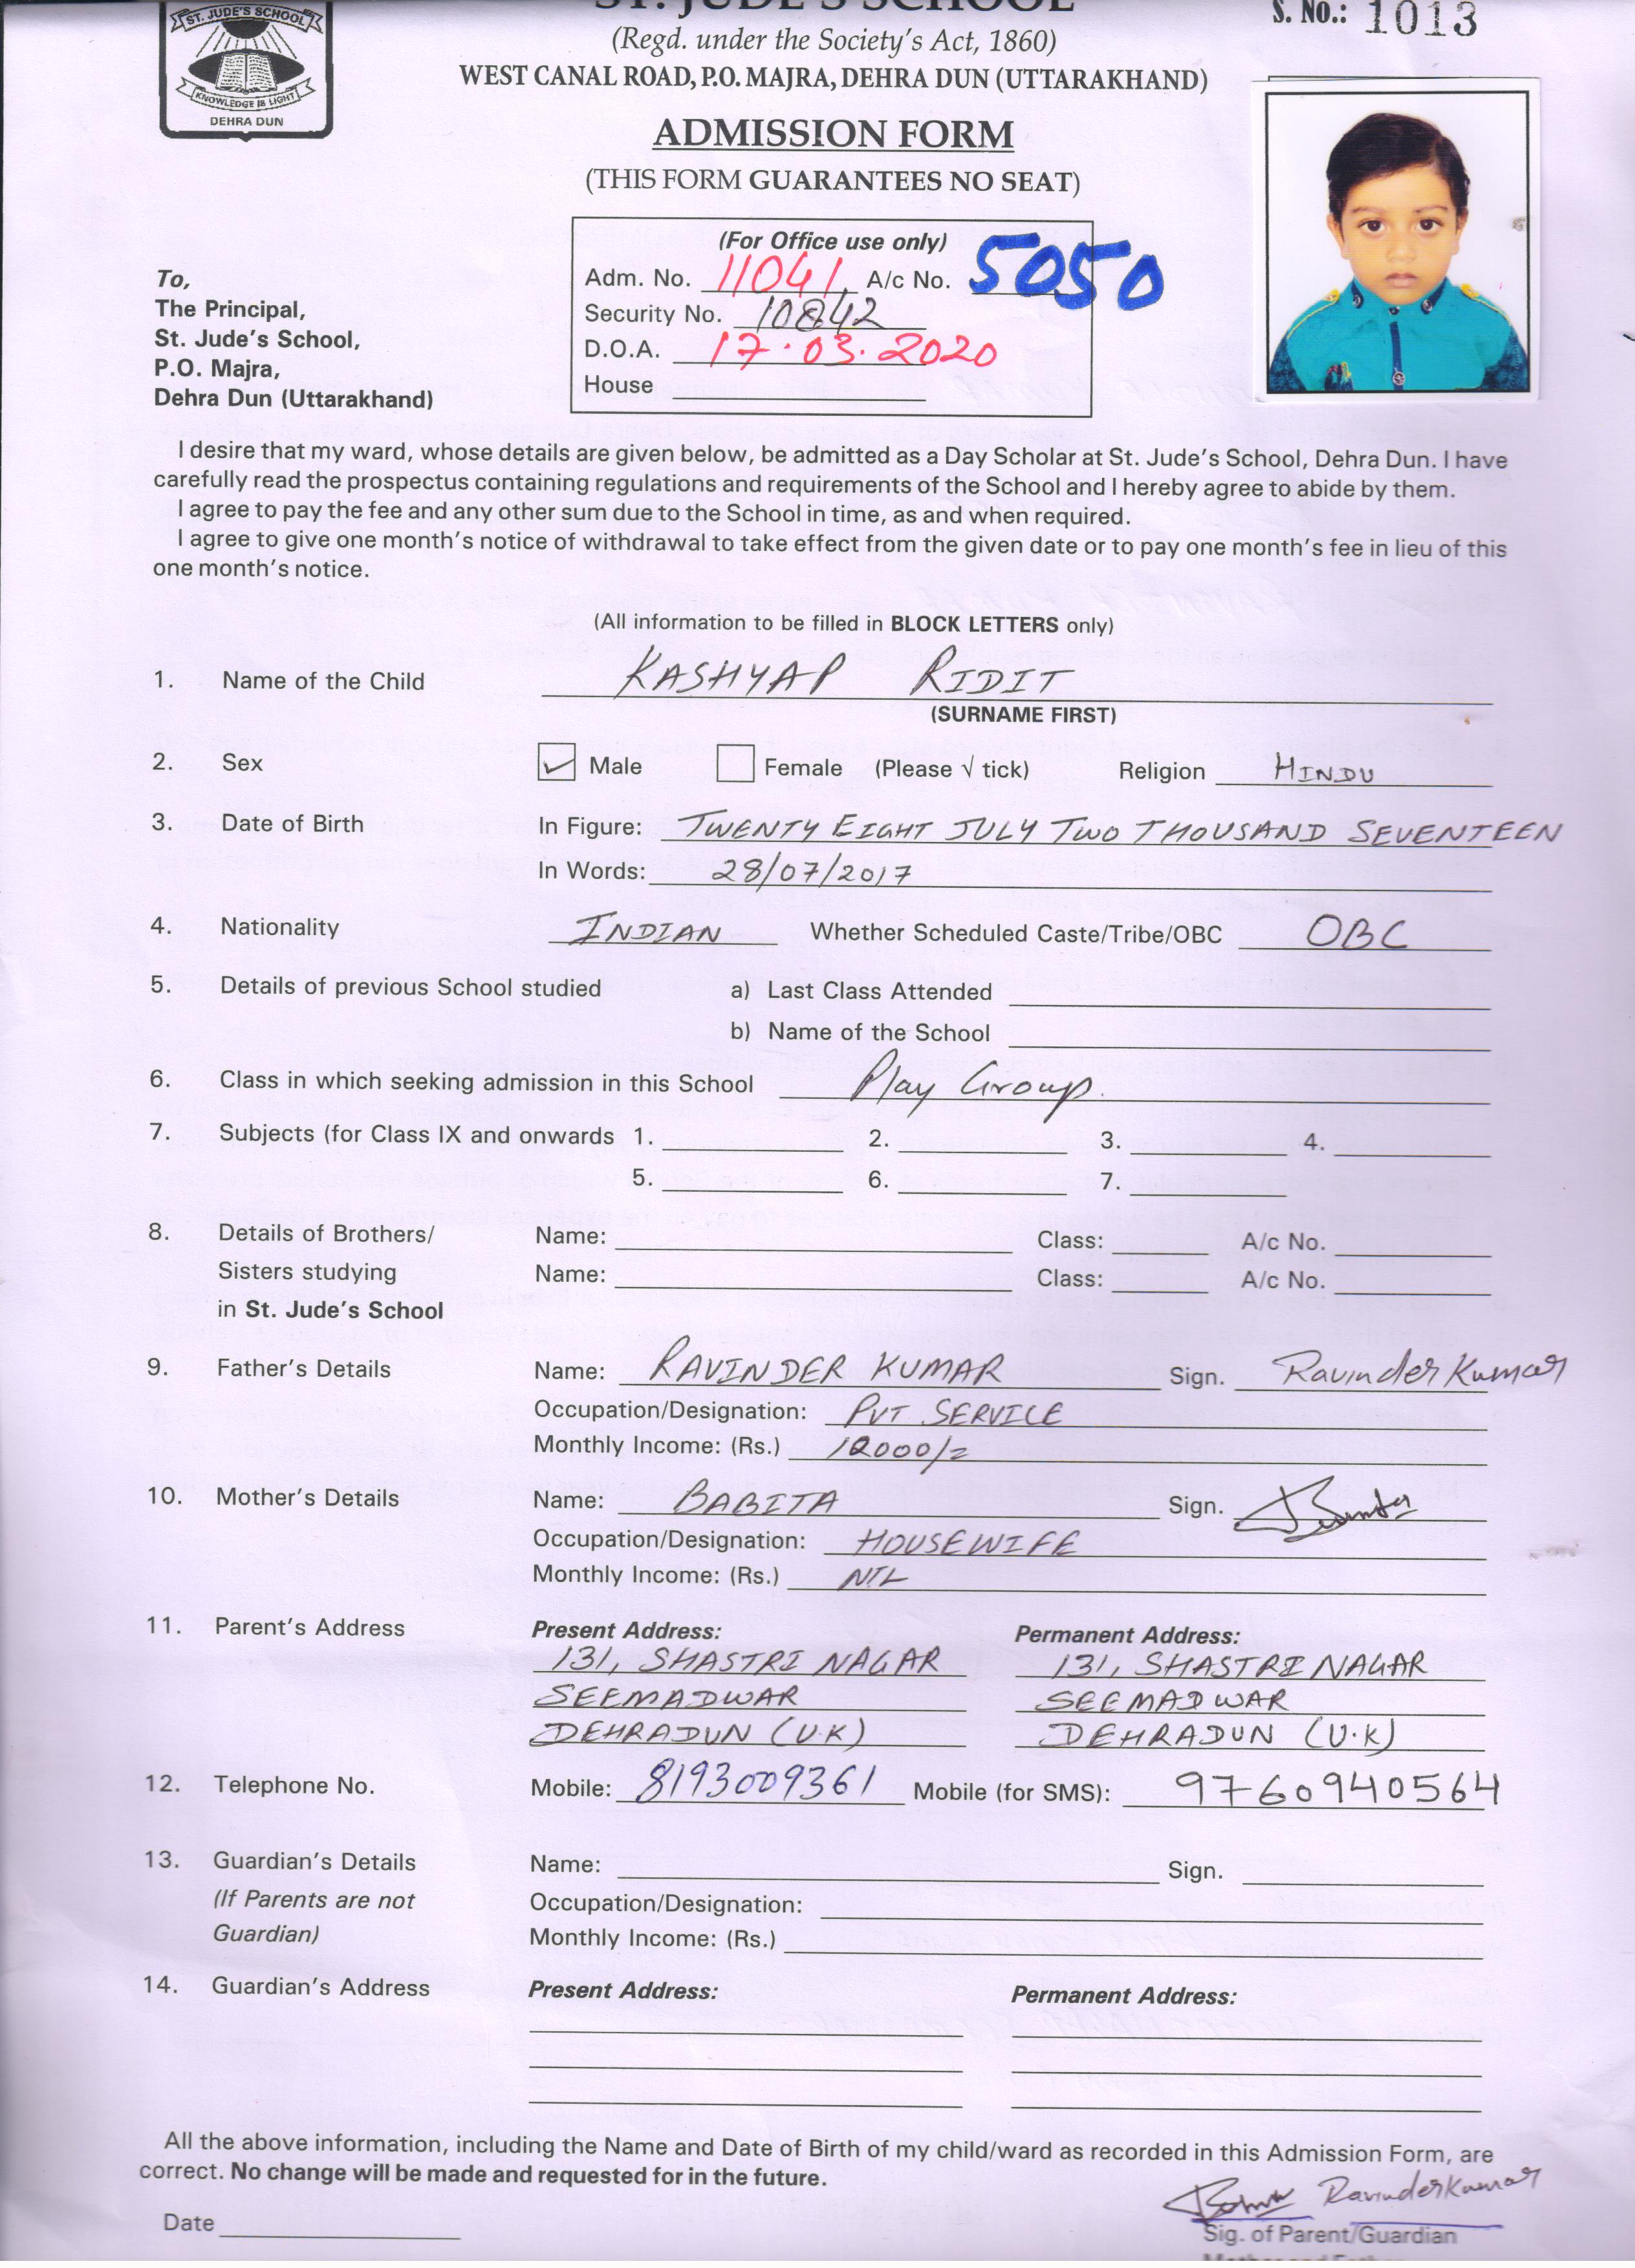 ST. JUDE'S SCHOOL
S. No.: 1013
ST. JUDE'S SCHOOL
KNOWLEDGE IS LIGHT
DEHRA DUN
(Regd. under the Society's Act, 1860)
WEST CANAL ROAD, P.O. MAJRA, DEHRA DUN (UTTARAKHAND)
ADMISSION FORM
(THIS FORM GUARANTEES NO SEAT)
(For Office use only)
Adm. No. 11041 A/c No. 5050
Security No. 10842
D.O.A. 17.03.2020
House
To,
The Principal,
St. Jude's School,
P.O. Majra,
Dehra Dun (Uttarakhand)
I desire that my ward, whose details are given below, be admitted as a Day Scholar at St. Jude's School, Dehra Dun. I have
carefully read the prospectus containing regulations and requirements of the School and I hereby agree to abide by them.
I agree to pay the fee and any other sum due to the School in time, as and when required.
I agree to give one month's notice of withdrawal to take effect from the given date or to pay one month's fee in lieu of this
one month's notice.
(All information to be filled in BLOCK LETTERS only)
1. Name of the Child KASHYAP RIDIT
(SURNAME FIRST)
2. Sex ✓ Male Female (Please √ tick) Religion HINDU
3. Date of Birth In Figure: TWENTY EIGHT JULY TWO THOUSAND SEVENTEEN
In Words: 28/07/2017
4. Nationality INDIAN Whether Scheduled Caste/Tribe/OBC OBC
5. Details of previous School studied a) Last Class Attended
b) Name of the School
6. Class in which seeking admission in this School Play Group.
7. Subjects (for Class IX and onwards 1. 2. 3. 4.
5. 6. 7.
8. Details of Brothers/ Name: Class: A/c No.
Sisters studying Name: Class: A/c No.
in St. Jude's School
9. Father's Details Name: RAVINDER KUMAR Sign. Ravinder Kumar
Occupation/Designation: PVT SERVICE
Monthly Income: (Rs.) 12000/=
10. Mother's Details Name: BABITA Sign.
Occupation/Designation: HOUSEWIFE
Monthly Income: (Rs.) NIL
11. Parent's Address Present Address: Permanent Address:
131, SHASTRI NAGAR 131, SHASTRI NAGAR
SEEMADWAR SEEMADWAR
DEHRADUN (U.K) DEHRADUN (U.K)
12. Telephone No. Mobile: 8193009361 Mobile (for SMS): 9760940564
13. Guardian's Details Name: Sign.
(If Parents are not Occupation/Designation:
Guardian) Monthly Income: (Rs.)
14. Guardian's Address Present Address: Permanent Address:
All the above information, including the Name and Date of Birth of my child/ward as recorded in this Admission Form, are
correct. No change will be made and requested for in the future.
Ravinder Kumar
Date Sig. of Parent/Guardian